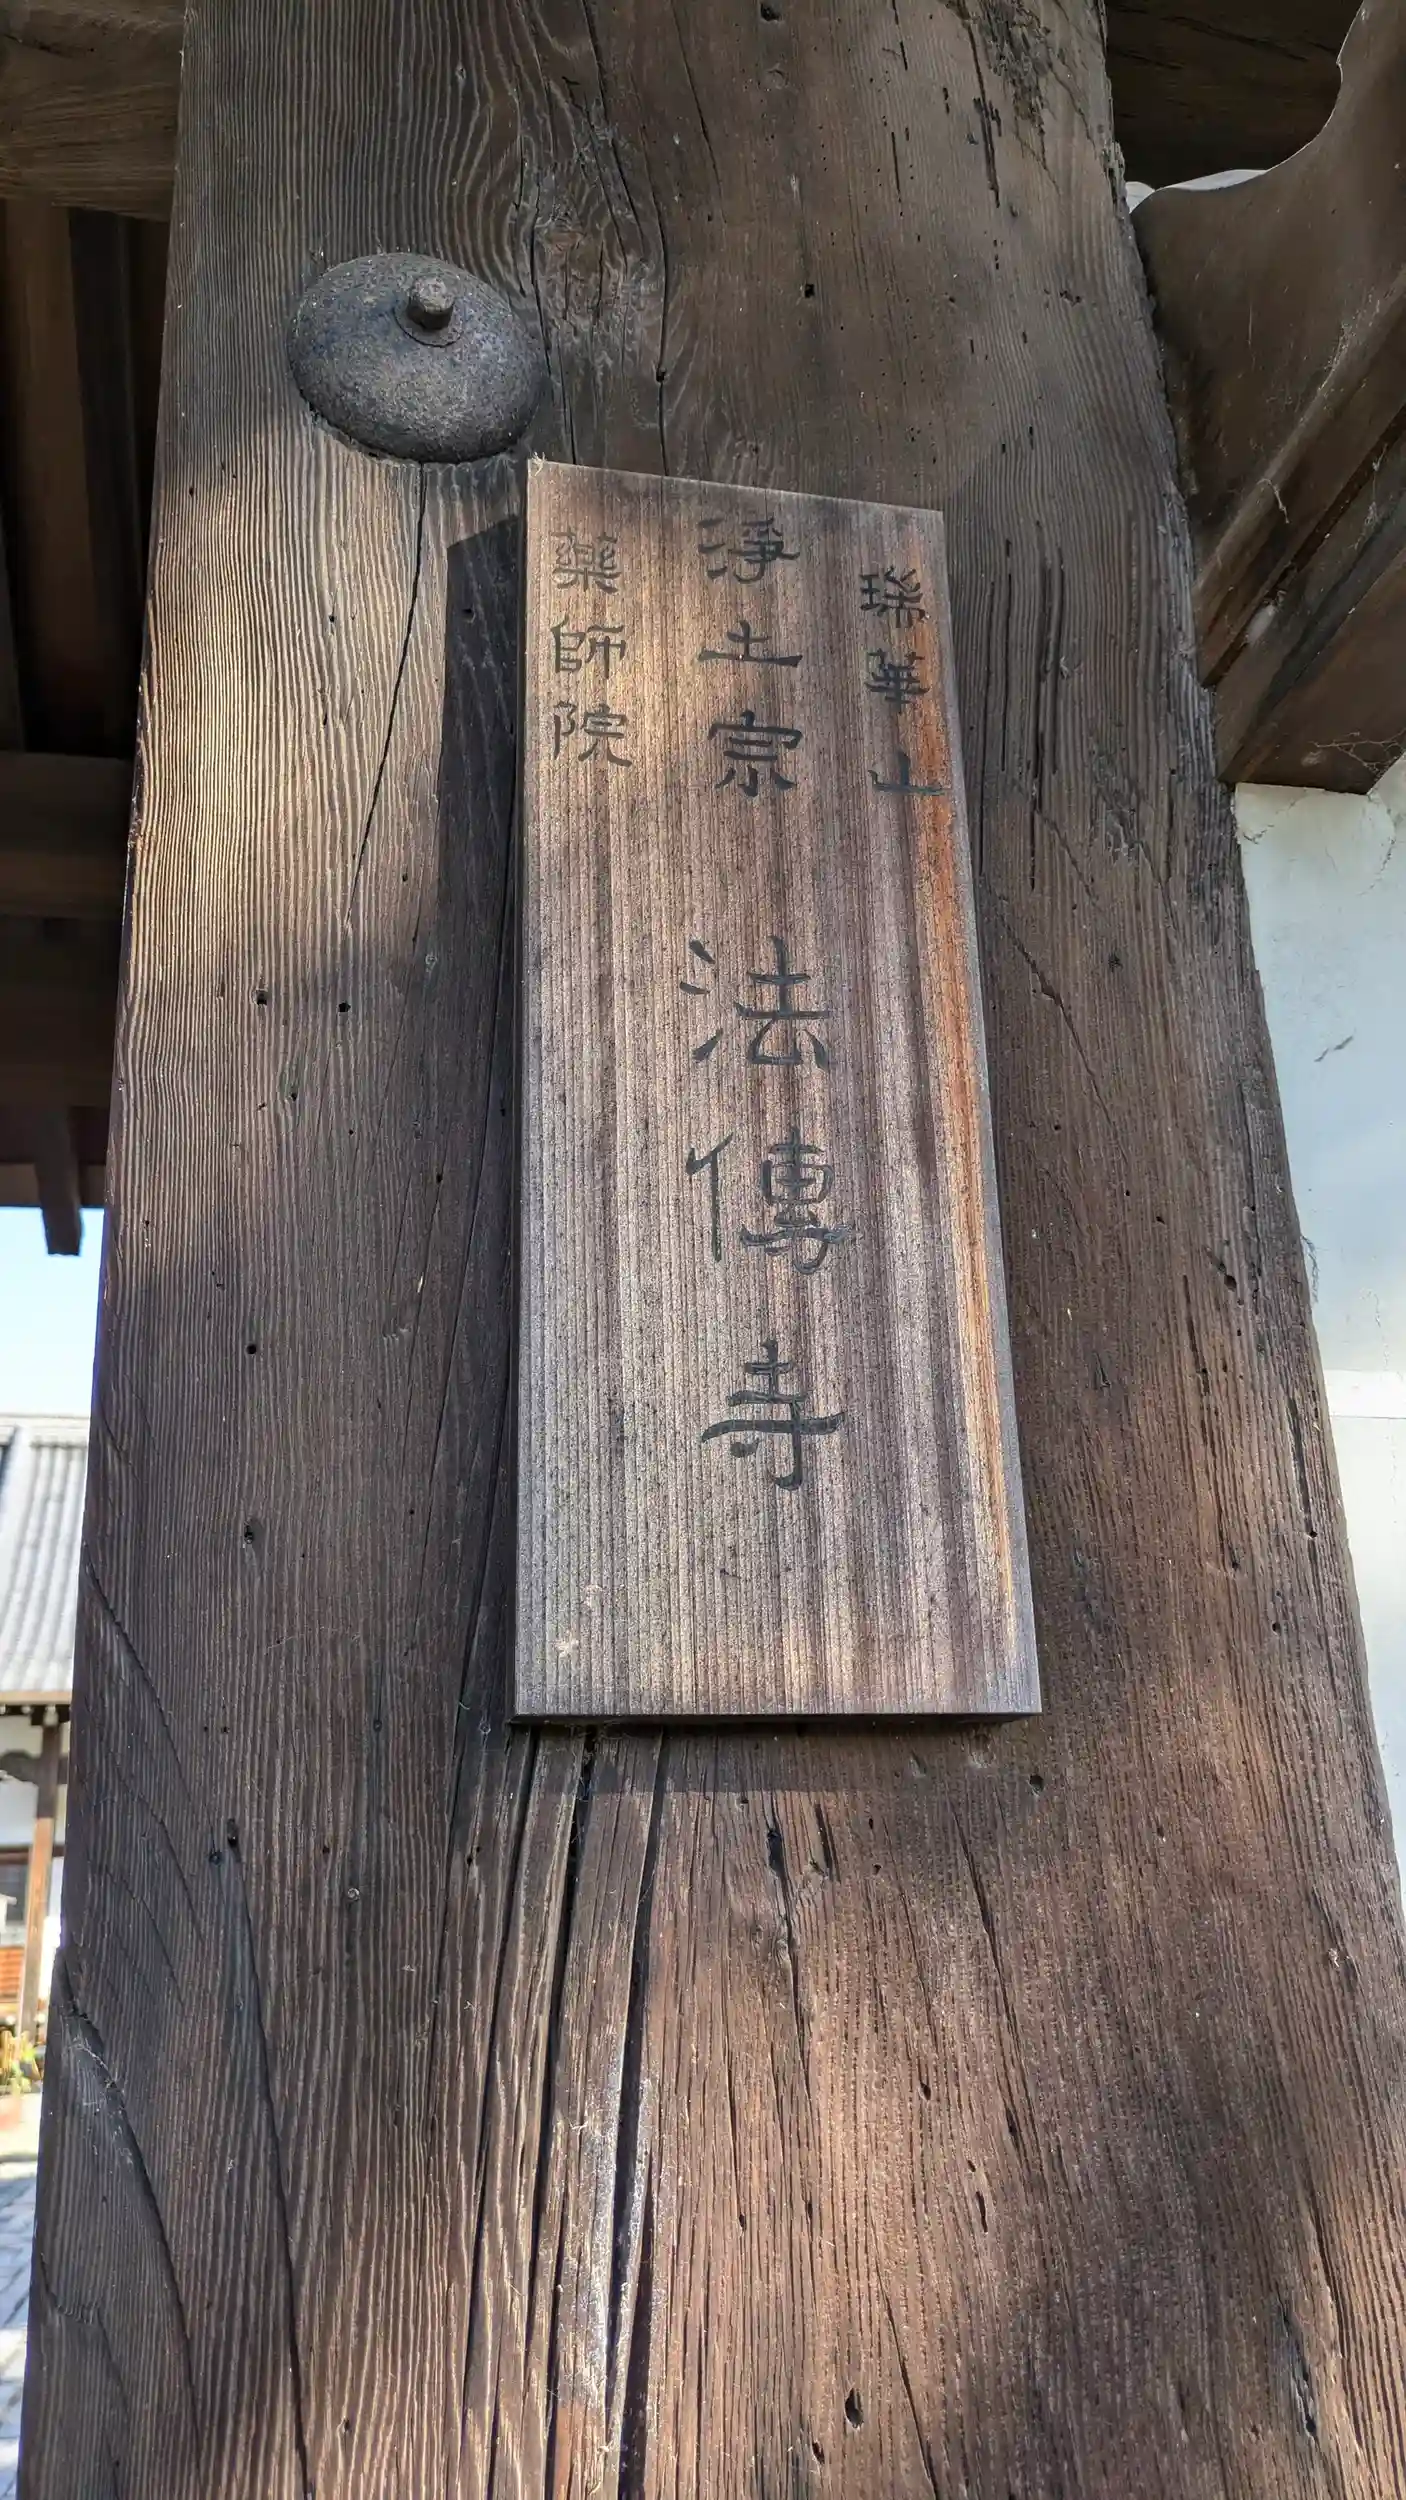 瑞華山
淨土宗 法傳寺
藥師院